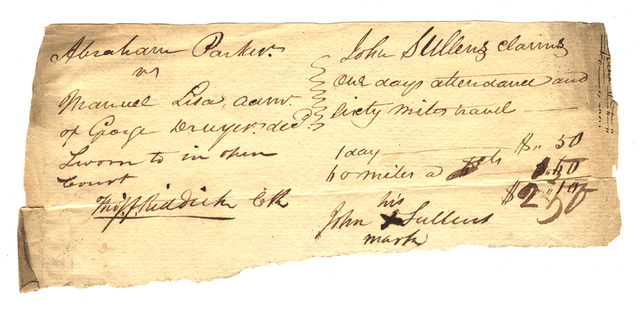 Abraham Parker
vs
Manuel Lisa, admr.
of George Druyer decd
Sworn to in open
Court
Thos F Riddick Clk
John Sullens claims
One days attendance and
Sixty miles travel
1 day $,, 50
60 miles a cts
$2 50
his
John X Sullens
mark